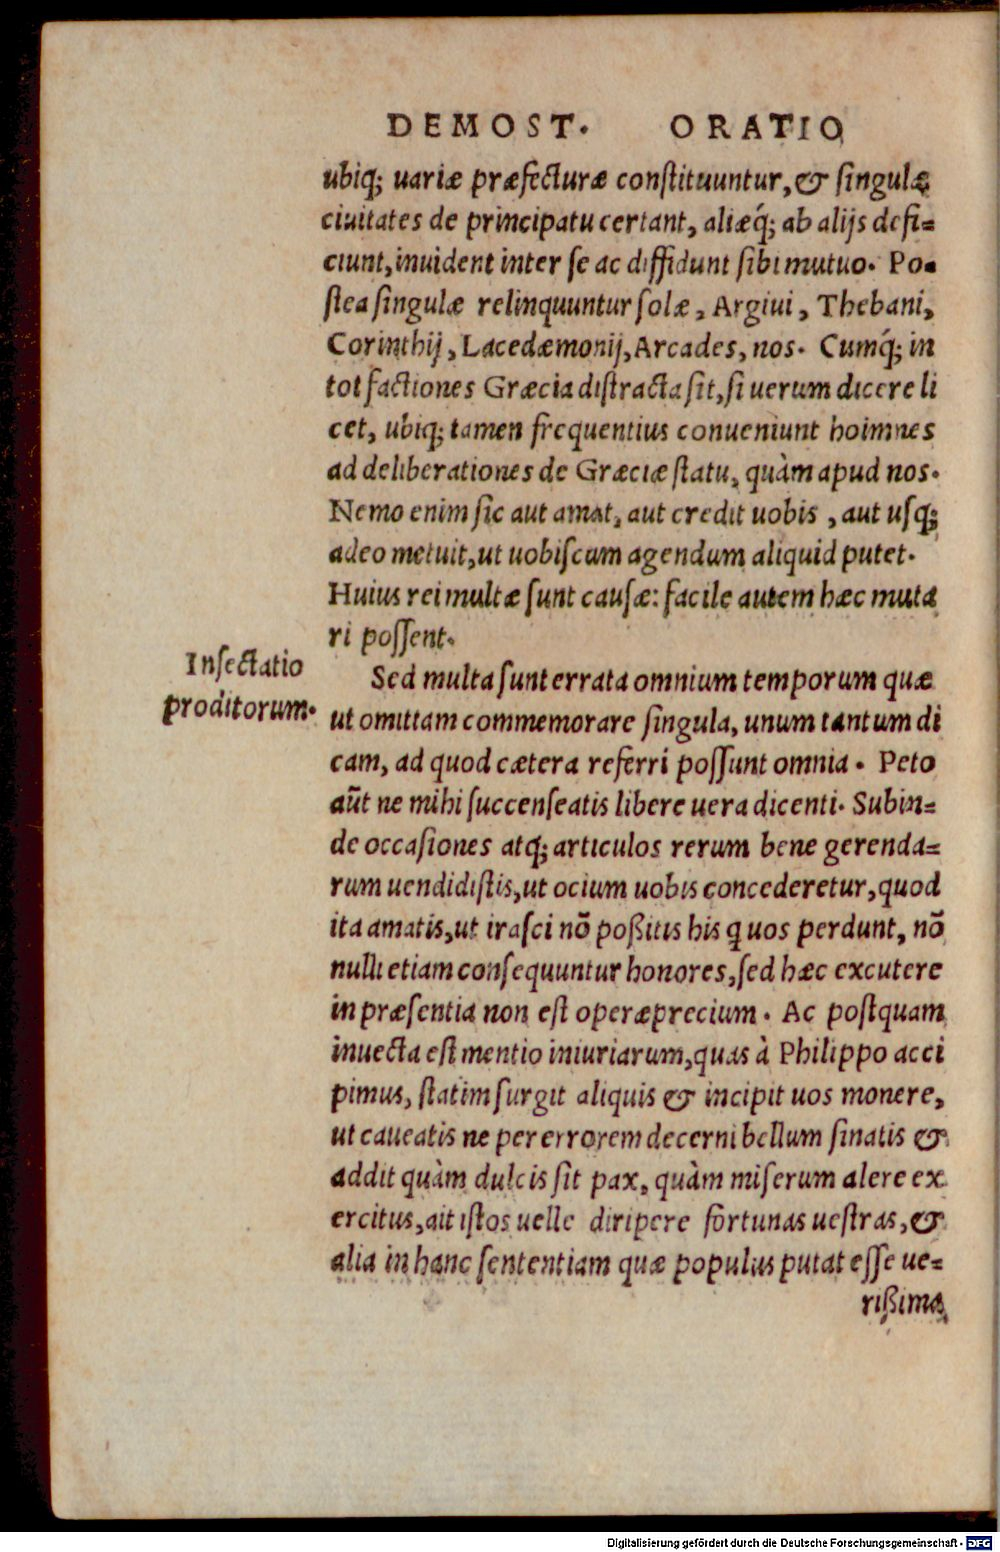 DEMOST. ORATIO
ubiq; uariæ præfecturæ constituuntur, & singulæ
ciuitates de principatu certant, aliæq́; ab alijs defi=
ciunt, inuident inter se ac diffidunt sibi mutuo. Po=
stea singulæ relinquuntur solæ, Argiui, Thebani,
Corinthij, Lacedæmonij, Arcades, nos. Cumq́; in
tot factiones Græcia distracta sit, si uerum dicere li
cet, ubiq; tamen frequentius conueniunt hoimnes
ad deliberationes de Græciæ statu, quàm apud nos.
Nemo enim sic aut amat, aut credit uobis, aut usq;
adeo metuit, ut uobiscum agendum aliquid putet.
Huius rei multæ sunt causæ: facile autem hæc muta
ri possent.
Insectatio
proditorum.
Sed multa sunt errata omnium temporum quæ
ut omittam commemorare singula, unum tantum di
cam, ad quod cætera referri possunt omnia. Peto
aūt ne mihi succenseatis libere uera dicenti. Subin=
de occasiones atq; articulos rerum bene gerenda=
rum uendidistis, ut ocium uobis concederetur, quod
ita amatis, ut irasci nō poßitis his q uos perdunt, nō
nulli etiam consequuntur honores, sed hæc excutere
in præsentia non est operæprecium. Ac postquam
inuecta est mentio iniuriarum, quas à Philippo acci
pimus, statim surgit aliquis & incipit uos monere,
ut caueatis ne per errorem decerni bellum sinatis &
addit quàm dulcis sit pax, quàm miserum alere ex
ercitus, ait istos uelle diripere fortunas uestras, &
alia in hanc sententiam quæ populus putat esse ue=
rißima
Digitalisierung gefördert durch die Deutsche Forschungsgemeinschaft - DFG